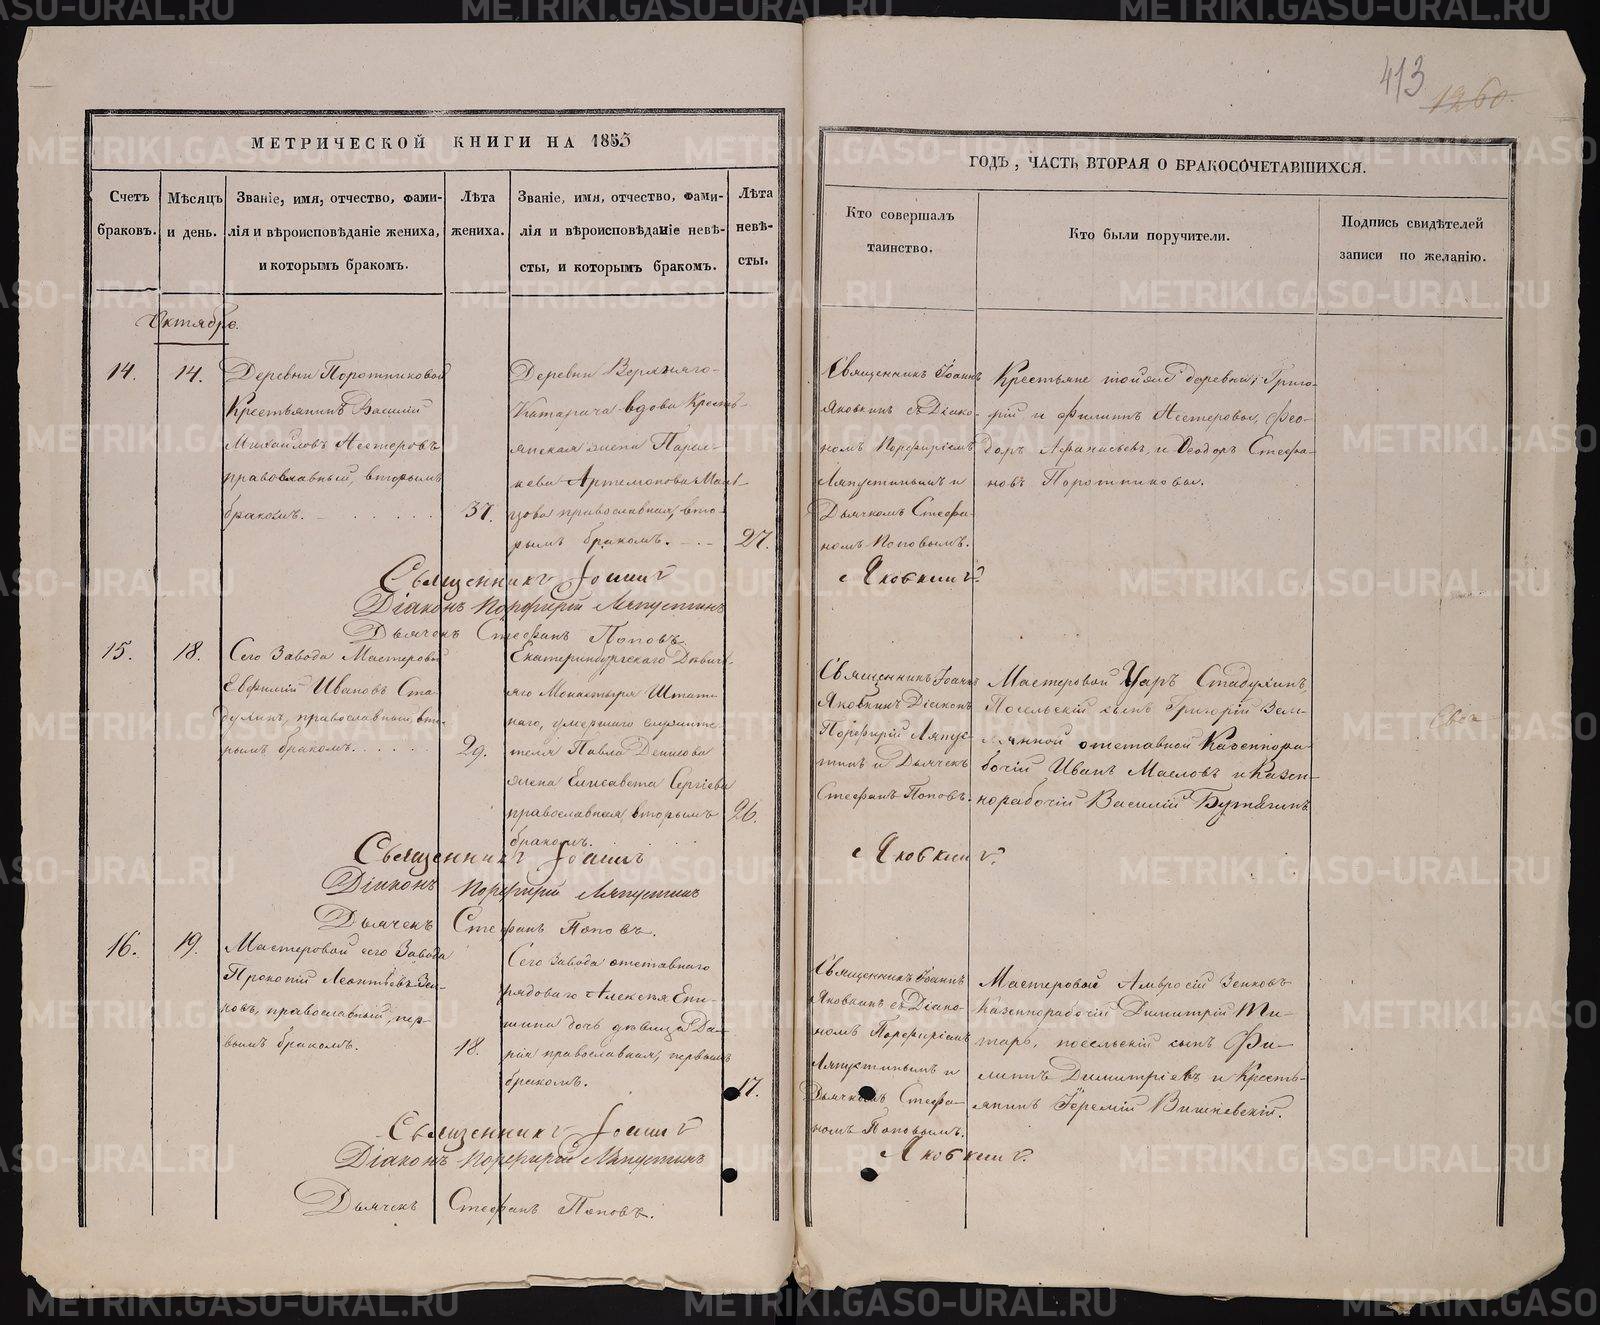 413
1260
МЕТРИЧЕСКОЙ КНИГИ НА 1853
ГОДЪ, ЧАСТЬ ВТОРАЯ О БРАКОСОЧЕТАВШИХСЯ.
Счетъ браковъ.
Мѣсяцъ и день.
Званіе, имя, отчество, фами-
лія и вѣроисповѣданіе жениха,
и которымъ бракомъ.
Лѣта
жениха.
Званіе, имя, отчество, фами-
лія и вѣроисповѣданіе невѣ-
сты, и которымъ бракомъ.
Лѣта
невѣ-
сты.
Кто совершалъ
таинство.
Кто были поручители.
Подпись свидѣтелей
записи по желанію.
Октябрь.
14.
14.
Деревни Поротниковой
Крестьянинъ Василій
Михайловъ Нестеровъ
православный, вторымъ
бракомъ.
37.
Деревни Верхняго
Катарача вдова Кресть-
янская жена Парас-
кева Артемонова
православная, вто-
рымъ бракомъ.
27.
Священникъ Іоаннъ
Яковкинъ съ Діако-
номъ Порфиріемъ
Ляпустинымъ и
Дьячкомъ Стефа-
номъ Поповымъ.
Крестьяне тойже деревни: Григо-
рій и Филиппъ Нестеровы, Фео-
доръ Афанасьевъ, и Феодоръ Стефа-
новъ Поротниковы.
Священникъ Іоаннъ
Яковкинъ.
Діаконъ Порфирій Ляпустинъ
Дьячекъ Стефанъ Поповъ
15.
18.
Сего Завода Мастеровой
Евфимій Ивановъ Ста-
духинъ, православный, вто-
рымъ бракомъ.
29.
Екатеринбургскаго Дѣвичь-
яго Монастыря Штат-
наго, умершаго служи-
теля Павла Денисова
жена Елисавета Сергіева
православная, вторымъ
бракомъ.
26.
Священникъ Іоаннъ
Яковкинъ Діаконъ
Порфирій Ляпус-
тинъ и Дьячекъ
Стефанъ Поповъ.
Мастеровой Уаръ Стадухинъ,
Посельскій сынъ Григорій Зем-
лянной отставной Казеннора-
бочій Иванъ Масловъ и Казен-
норабочій Василій Бутягинъ
Священникъ Іоаннъ
Яковкинъ.
Діаконъ Порфирій Ляпустинъ
Дьячекъ Стефанъ Поповъ.
16.
19.
Мастеровой сего Завода
Прокопій Леонтьевъ Зен-
ковъ, православный, пер-
вымъ бракомъ.
18.
Сего Завода отставнаго
рядоваго Алексѣя Епи-
шина дочь дѣвица Да-
рія православная, первымъ
бракомъ.
17.
Священникъ Іоаннъ
Яковкинъ съ Діако-
номъ Порфиріемъ
Ляпустинымъ и
Дьячкомъ Стефа-
номъ Поповымъ.
Мастеровые Амвросій Зенковъ
Казеннорабочій Димитрій Ти-
тарь, посельскій сынъ Фи-
липпъ Димитріевъ и Кресть-
янинъ Іеремій Вишневскій.
Священникъ Іоаннъ
Яковкинъ.
Діаконъ Порфирій Ляпустинъ
Дьячекъ Стефанъ Поповъ.
METRIKI.GASO-URAL.RU